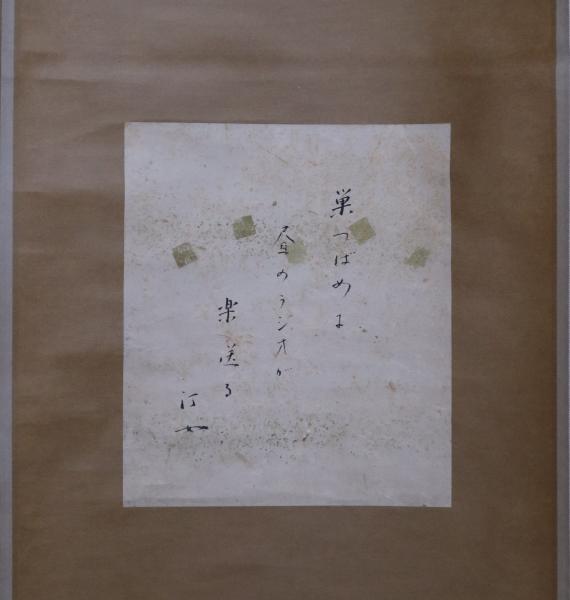 巣つばめに
昼のラジオが
楽送る
汀女